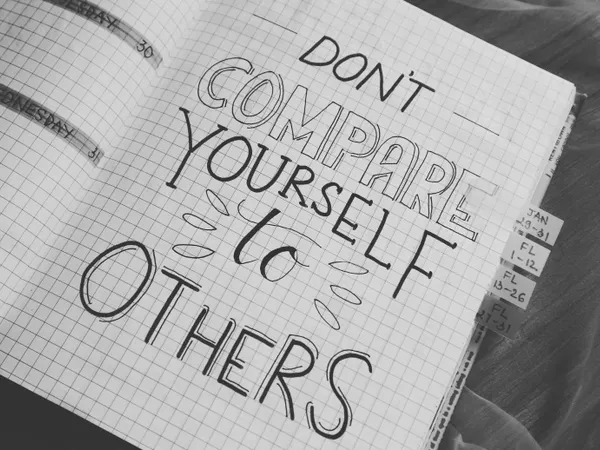 ESDAY 30
DNESDAY 3
DON'T
COMPARE
YOURSELF
to
OTHERS
JAN
29-31
FL
1-12
FL
13-26
FL